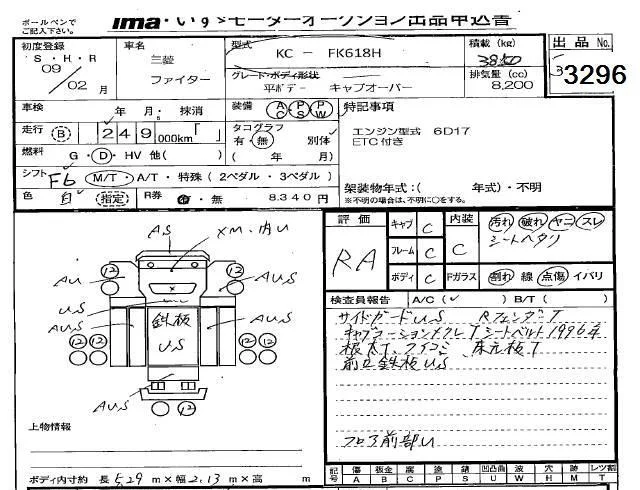 ボールペンで
ご記入下さい。
ima・いすゞモーターオークション出品申込書
初度登録
S・H・R
09
02 月
車名
三菱
ファイター
型式
KC - FK618H
グレード・ボディ形状
平ボデー・ キャブオーバー
積載 (kg)
3850
排気量 (cc)
8,200
出品 No.
3296
車検 年 月・抹消
走行 B 249 000km「 」
燃料 G・D・HV 他( )
シフト F6 M/T・A/T・特殊 (2ペダル・3ペダル)
色 白 指定 R券 有・無 8340円
装備 AC PS PW
タコグラフ 別体
有・無
( 年 月)
特記事項
エンジン型式 6D17
ETC付き
架装物年式:( 年式)・不明
*不明の場合は、不明に○をする。
評価
RA
キャブ C
フレーム C
ボディ C
内装
C
汚れ 破れ ヤニ スレ
シートヘタリ
Fガラス 割れ 線 点傷 イバリ
検査員報告 A/C( ✓ ) B/T( )
サイドガードU.S RフェンダーT
シートベルト1996年
根太T 床元板T
前立鉄板U.S
フロア前部U
AS
XM.内U
12
12
AU
AUS
US
AUS
AUS
鉄板
US
12 12
12 12
AUS
12
上物情報
ボディ内寸約 長 5.29 m×幅 2.13 m×高 m
記号
傷 板金 腐 塗 錆 凹凸曲 波 穴 無 レツ割
A B C P S U W H M T